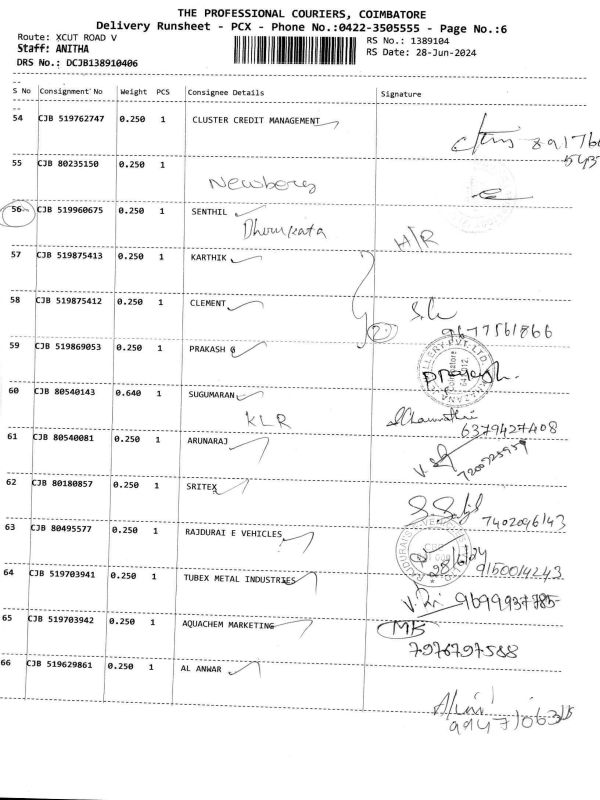 THE PROFESSIONAL COURIERS, COIMBATORE
Delivery Runsheet - PCX - Phone No.:0422-3505555 - Page No.:6
Route: XCUT ROAD V
RS No.: 1389104
Staff: ANITHA
RS Date: 28-Jun-2024
DRS No.: DCJB138910406
S No Consignment No Weight PCS Consignee Details Signature
54 CJB 519762747 0.250 1 CLUSTER CREDIT MANAGEMENT
55 CJB 80235150 0.250 1
Newberg
56 CJB 519960675 0.250 1 SENTHIL
H/R
57 CJB 519875413 0.250 1 KARTHIK
58 CJB 519875412 0.250 1 CLEMENT
2
9677561866
59 CJB 519869053 0.250 1 PRAKASH G
60 CJB 80540143 0.640 1 SUGUMARAN
KLR
6379427408
61 CJB 80540081 0.250 1 ARUNARAJ
62 CJB 80180857 0.250 1 SRITEX
7402096143
63 CJB 80495577 0.250 1 RAJDURAI E VEHICLES
9150014243
64 CJB 519703941 0.250 1 TUBEX METAL INDUSTRIES
9699937785
65 CJB 519703942 0.250 1 AQUACHEM MARKETING
MK
7976797588
66 CJB 519629861 0.250 1 AL ANWAR